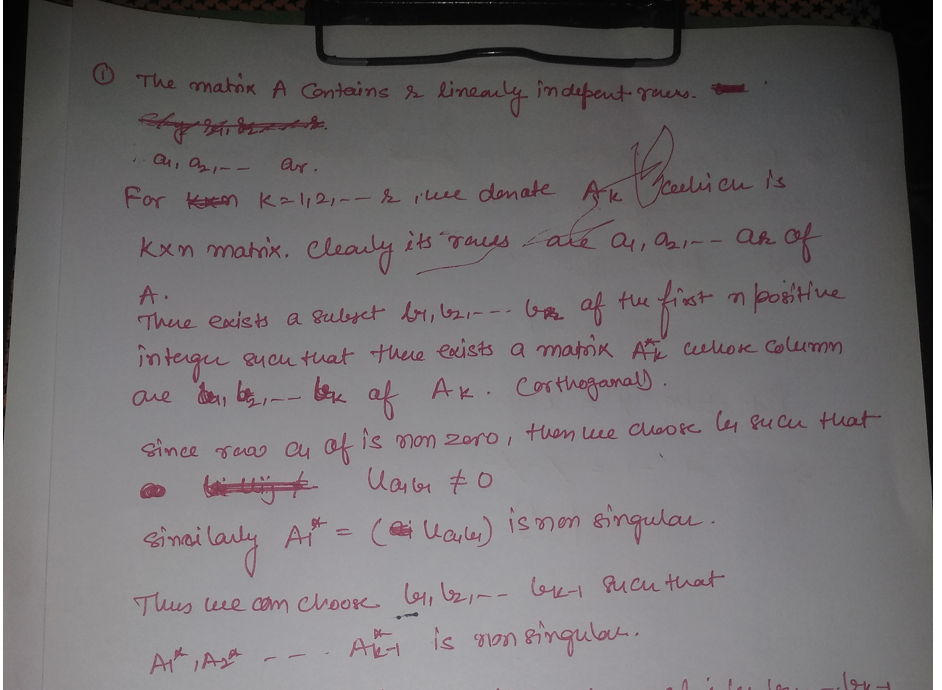 ① The matrix A contains r linearly indepent rows.
a₁, a₂, -- ar.
For k=1,2,-- r, we denote Ak which is
k×n matrix. Clearly its rows are a₁, a₂, -- ak of
A.
There exists a subset b₁, b₂, --- bk of the first n positive
interger such that there exists a matrix A*k whose column
are b₁, b₂, -- bk of Ak. (orthoganal).
since row a₁ of is non zero, then we choose b₁ such that
Ua₁b₁ ≠ 0
similarly A₁* = (Ua₁b₁) is non singular.
Thus we can choose b₁, b₂, -- bk-1 such that
A₁*, A₂* --- . A*k-1 is non singular.